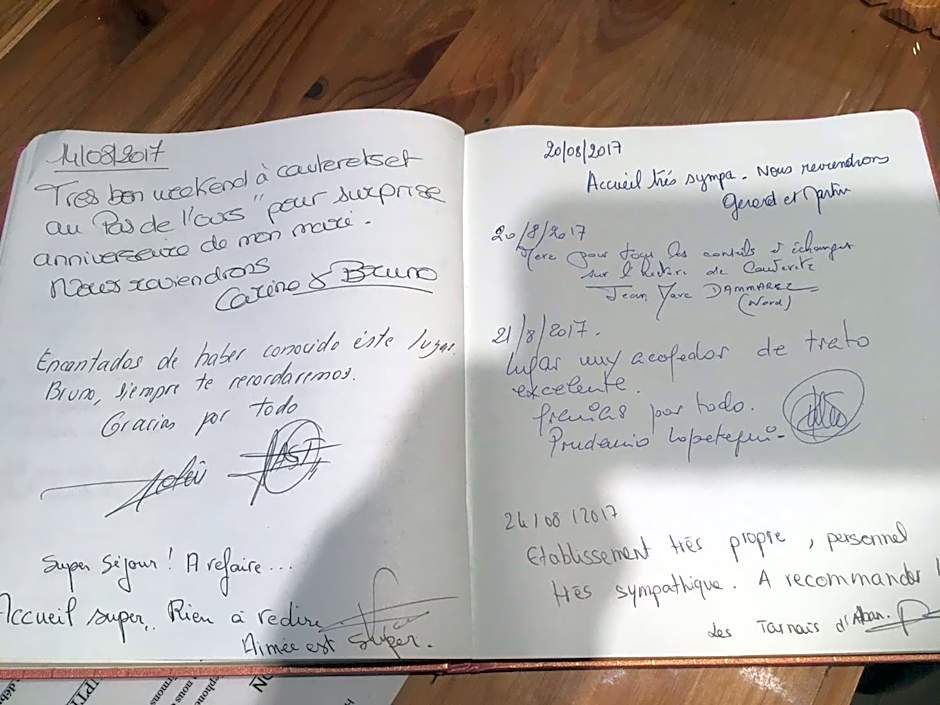 14/08/2017
Tres bon weekend à cauterets et
au "Pas de l'ours" pour surprise
anniversaire de mon mari.
Nous reviendrons
Carine & Bruno
Encantados de haber conocido éste lugar.
Bruno, siempre te recordaremos.
Gracias por todo
Super Séjour! A refaire...
Accueil super.. Rien à redire
Aimée est super.
20/08/2017
Accueil très sympa. Nous reviendrons
Gerard et Martin
20/8/2017
Merci pour tous les conseils et échanges
sur l'histoire de Cauterets
Jean Marc DAMMAREZ
(Nord)
21/8/2017.
Lugar muy acojedor de trato
excelente.
Gracias por todo.
Prudencio Lopetegui.
24/08/2017
Etablissement très propre, personnel
très sympathique. A recommander !
Les Tarnais d'Alban.